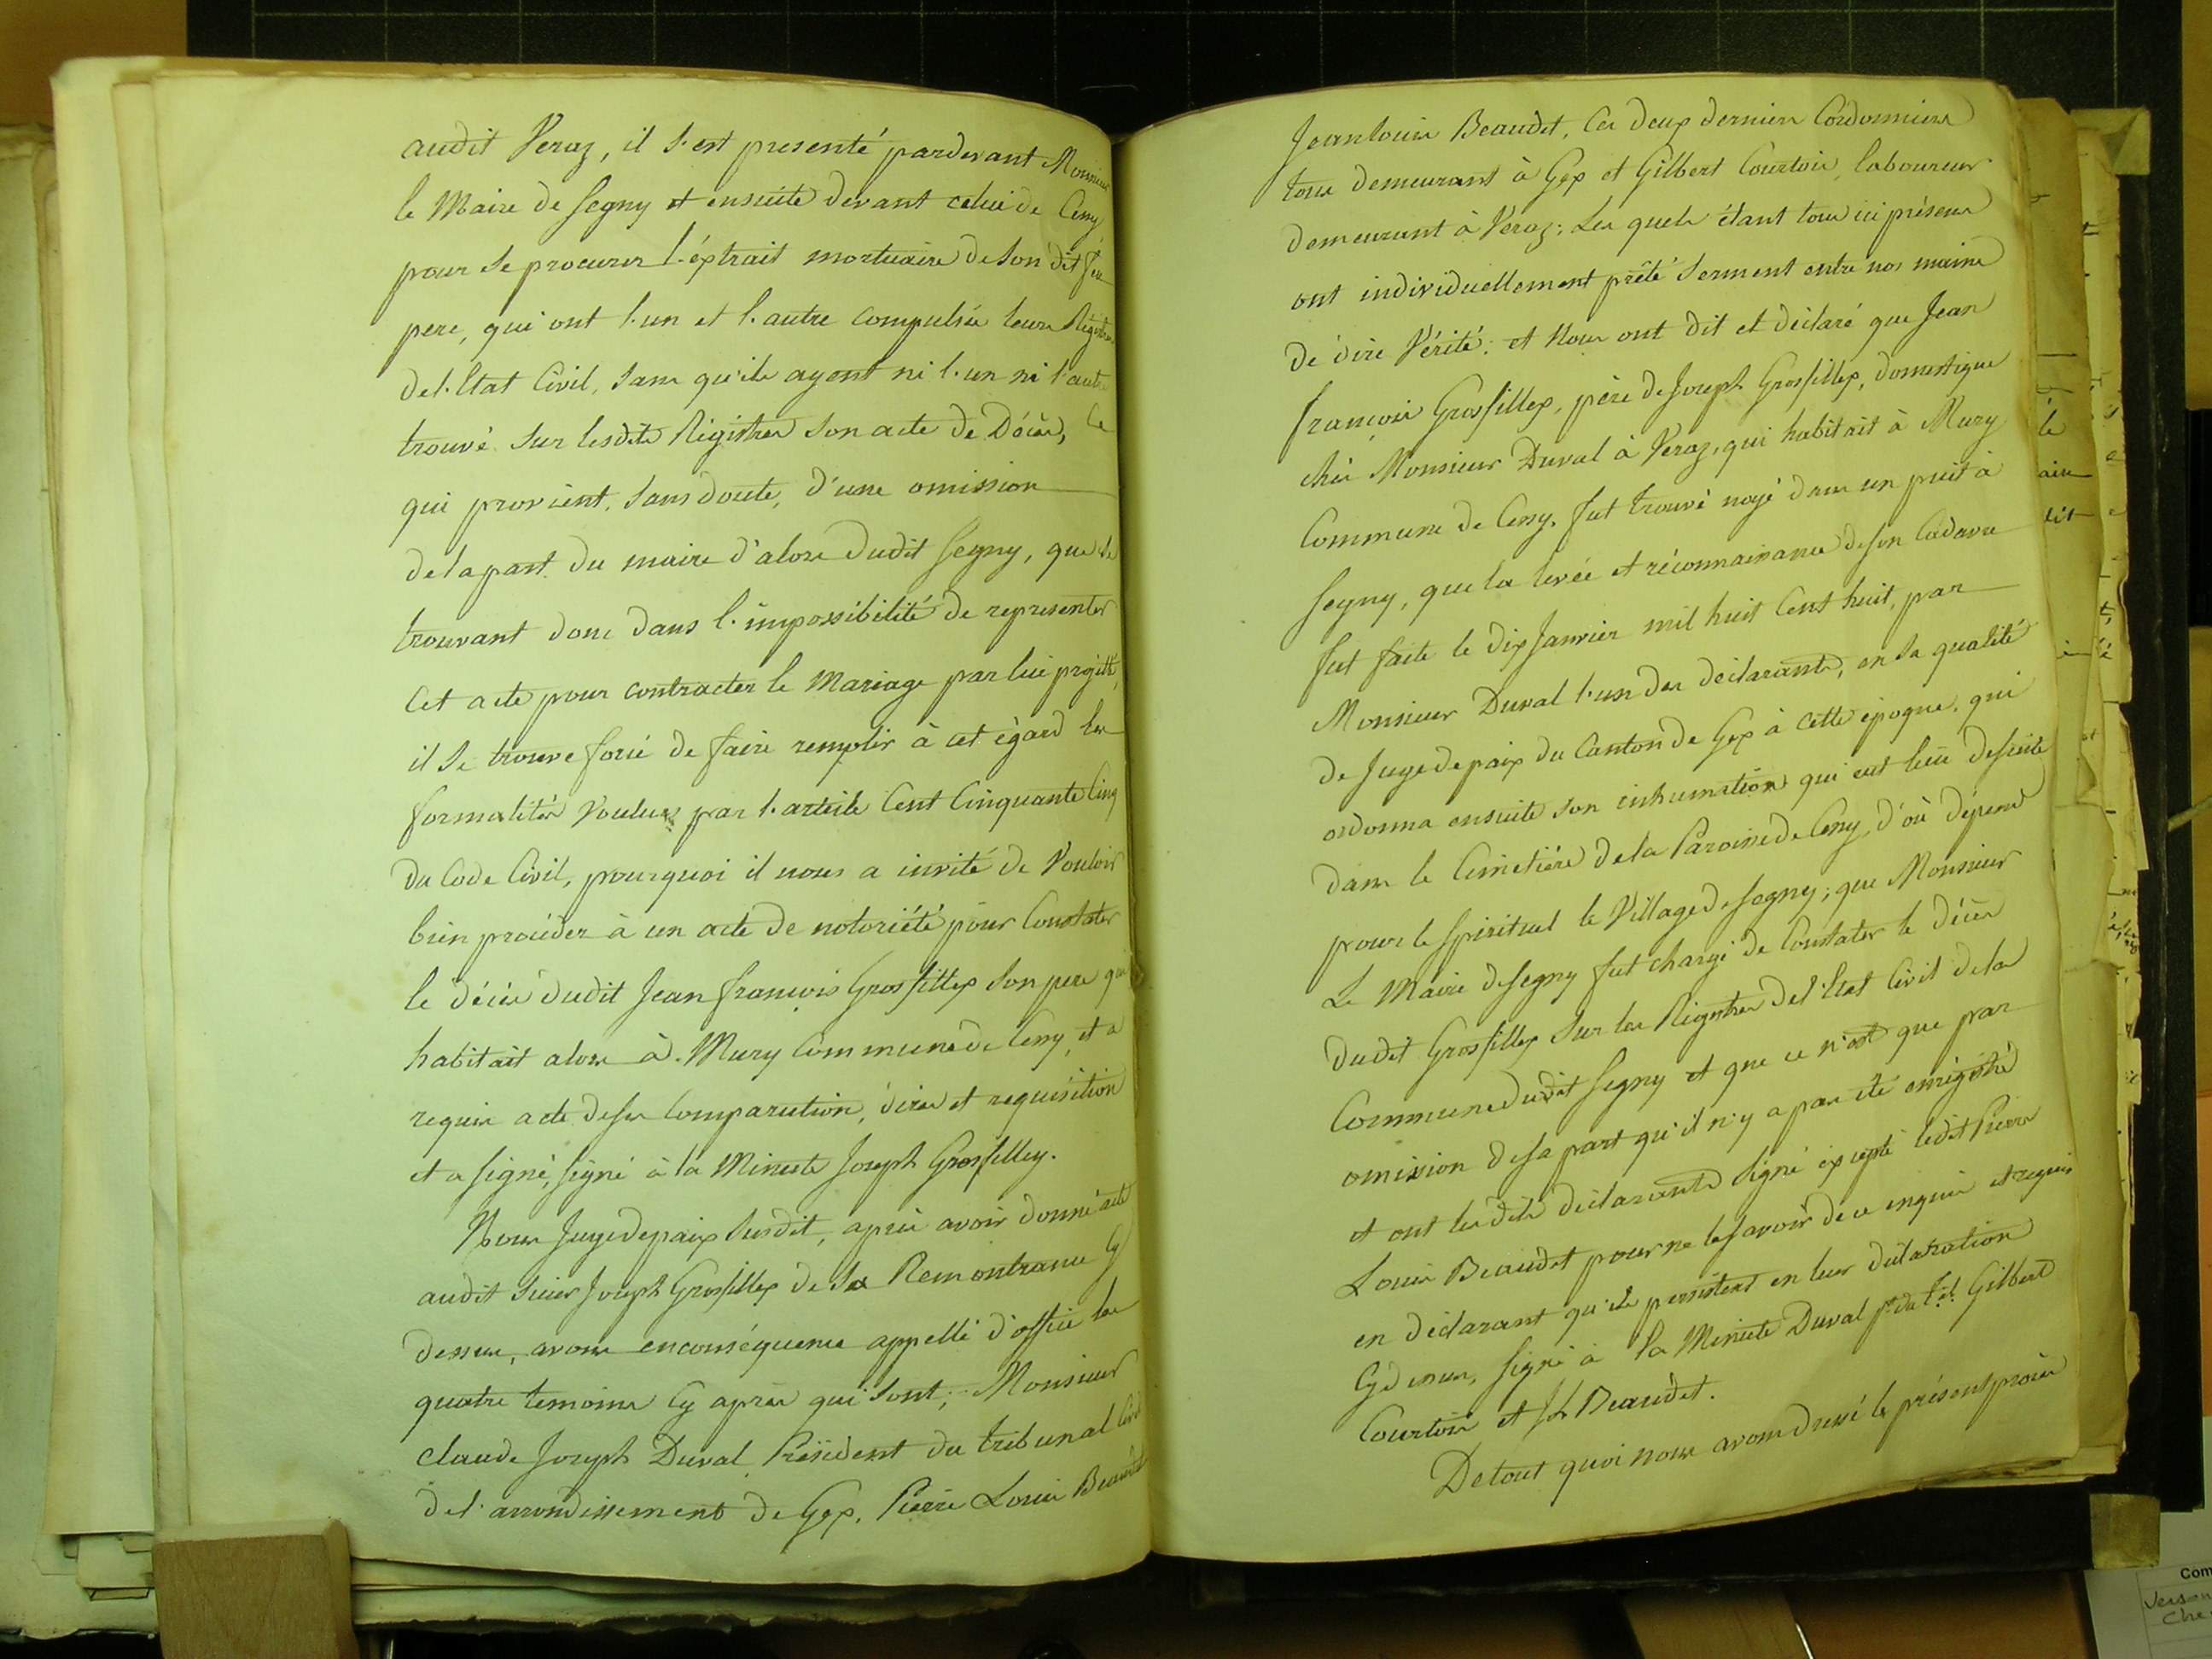 audit Veraz, il s'est presenté pardevant Monsieur
le Maire de Segny et ensuite devant celui de Cessy
pour se procurer l'éxtrait mortuaire de son dit feu
pere, qui ont l'un et l'autre compulsés leurs Régistres
de l'Etat Civil, sans qu'ils ayent ni l'un ni l'autre
trouvé sur lesdits Régistres son acte de Décès, Ce
qui provient, sans doute, d'une omission
de la part du maire d'alors dudit Segny, que se
trouvant donc dans l'impossibilité de representer
Cet acte pour contracter le Mariage par lui projetté,
il se trouve forcé de faire remplir à cet égard les
formalités voulues par l'article Cent Cinquante Cinq
du Code Civil, pourquoi il nous a invité de Vouloir
bien procéder à un acte de notoriété pour Constater
le décès dudit Jean françois Grosfillex son pere qui
habitait alors à Mury Commune de Cessy, et a
requis acte de ses Comparution, dires et requisition
et a signé, signé à la Minute Joseph Grosfilley.
Nous Juge de paix susdit, après avoir donné acte
audit sieur Joseph Grosfillex de sa Remontrance Cy
dessus, avons en conséquence appellé d'office les
quatre temoins Cy après qui sont; Monsieur
Claude Joseph Duval Président du tribunal Civil
de l'arrondissement de Gex, Pierre Louis Beaudet
Jean louis Beaudet, Ces deux derniers Cordonniers
tous demeurant à Gex et Gilbert Courtois, laboureur
demeurant à Veraz; Les quels étant tous ici présens
ont individuellement prêté serment entre nos mains
de dire Vérité; et Nous ont dit et déclaré que Jean
françois Grosfillex, père de Joseph Grosfillex, domestique
chès Monsieur Duval à Veraz, qui habitait à Mury
Commune de Cessy, fut trouvé noyé dans un puit à
Segny, que la levée et réconnaissance de son Cadavre
fut faite le dix Janvier mil huit Cent huit, par
Monsieur Duval l'un des déclarants, en sa qualité
de Juge de paix du Canton de Gex à cette époque, qui
ordonna ensuite son inhumation qui eut lieu de suite
dans le Cimetiére de la Paroisse de Cessy, d'où dépend
pour le Spirituel le Village de Segny; que Monsieur
Le Maire de Segny fut chargé de Constater le décès
dudit Grosfillex sur les Régistres de l'Etat Civil de la
Commune dudit Segny et que ce n'est que par
omission de sa part qu'il n'y a pas été enrégistré
et ont lesdits déclarants signé excepté ledit Pierre
Louis Beaudet pour ne le savoir de ce enquis et requis
en déclarant qu'ils persistent en leur déclaration
Cy dessus, signé à la Minute Duval pt. du tal. Gilbert
Courtois et Jl Beaudet.
De tout quoi nous avons dressé le présent procès
le
dit
Com